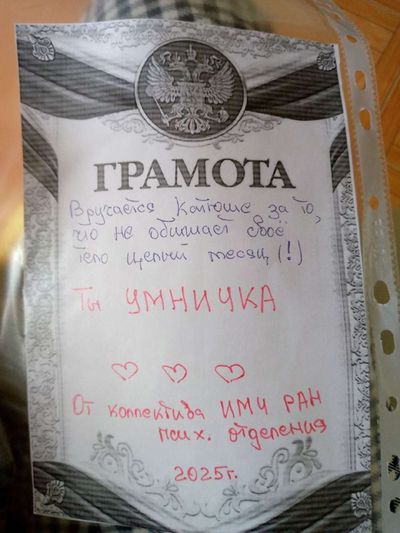 ГРАМОТА
Вручается Катюше за то,
что не обижает своё
тело целый месяц (!)
Ты УМНИЧКА
От коллектива ИМЧ РАН
псих. отделения
2025г.